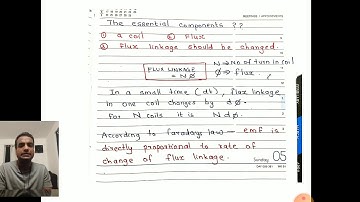 The essential components ??
① a coil ② Flux
③ Flux linkage should be changed.
FLUX LINKAGE = NØ
N ⇒ No. of turn in coil
Ø ⇒ flux.
In a small time (dt), flux linkage
in one coil changes by dØ.
For N coils it is NdØ.
According to faradays law — emf is
directly proportional to rate of
change of flux linkage.
Sunday 05